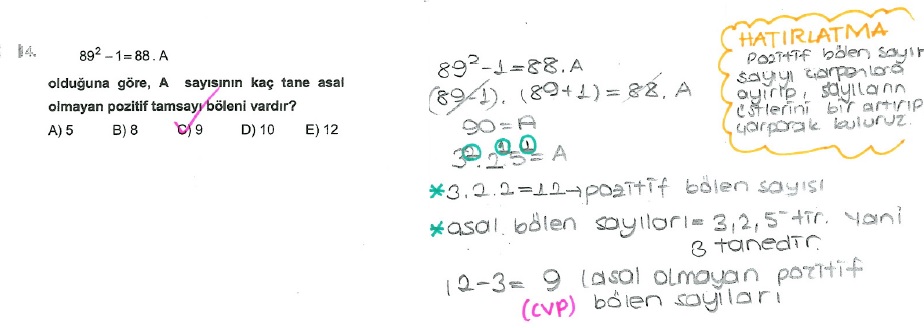 14.
89² – 1 = 88 . A
olduğuna göre, A sayısının kaç tane asal
olmayan pozitif tamsayı böleni vardır?
A) 5 B) 8 C) 9 D) 10 E) 12
89² - 1 = 88 . A
(89-1) . (89+1) = 88 . A
90 = A
3² . 2¹ . 5¹ = A
* 3 . 2 . 2 = 12 → pozitif bölen sayısı
* asal bölen sayıları = 3, 2, 5 tir. Yani
3 tanedir.
12 - 3 = 9 (asal olmayan pozitif
(CVP) bölen sayıları
HATIRLATMA
Pozitif bölen sayısı
sayıyı çarpanlara
ayırıp, sayıların
üstlerini bir artırıp
çarparak buluruz.